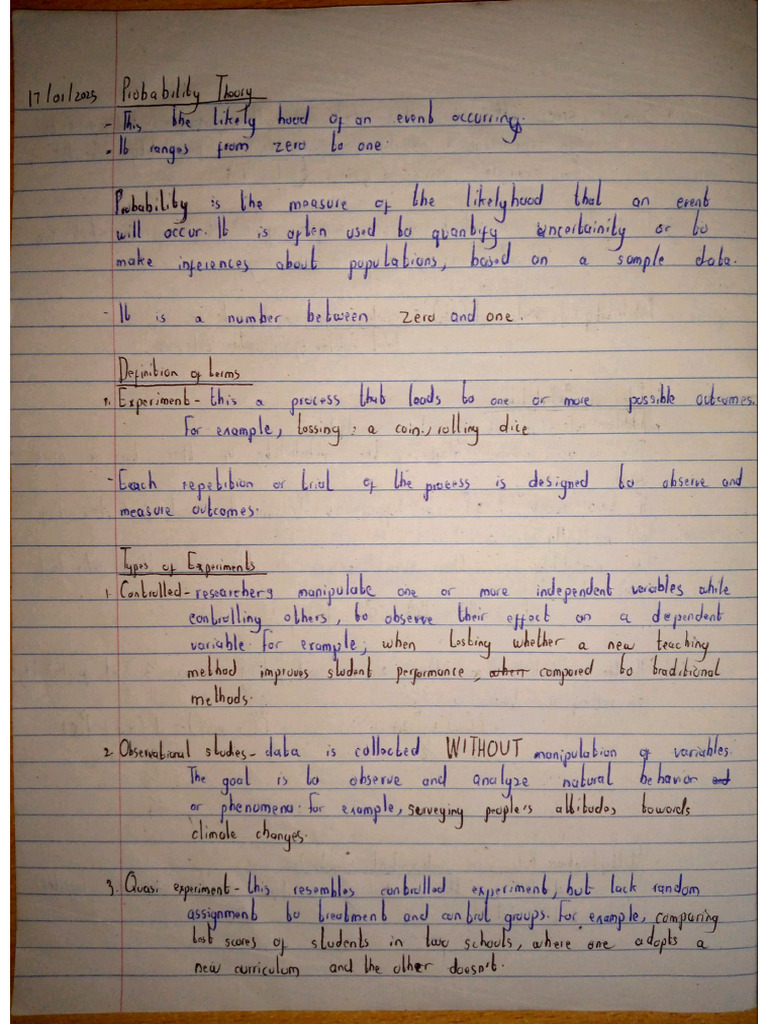 17/01/2025 Probability Theory
- This the likely hood of an event occurring.
- It ranges from zero to one.
Probability is the measure of the likelyhood that an event
will occur. It is often used to quantify uncertainity or to
make inferences about populations, based on a sample data.
- It is a number between zero and one.
Definition of terms
1. Experiment - this a process that leads to one or more possible outcomes.
For example, tossing : a coin, rolling dice
- Each repetition or trial of the process is designed to observe and
measure outcomes.
Types of Experiments
1. Controlled - researchers manipulate one or more independent variables while
controlling others, to observe their effect on a dependent
variable. For example, when testing whether a new teaching
method improves student performance, when compared to traditional
methods.
2. Observational studies - data is collected WITHOUT manipulation of variables.
The goal is to observe and analyze natural behavior and
or phenomena. For example, surveying people's attitudes towards
climate changes.
3. Quasi experiment - this resembles controlled experiment, but lack random
assignment to treatment and control groups. For example, comparing
test scores of students in two schools, where one adopts a
new curriculum and the other doesn't.